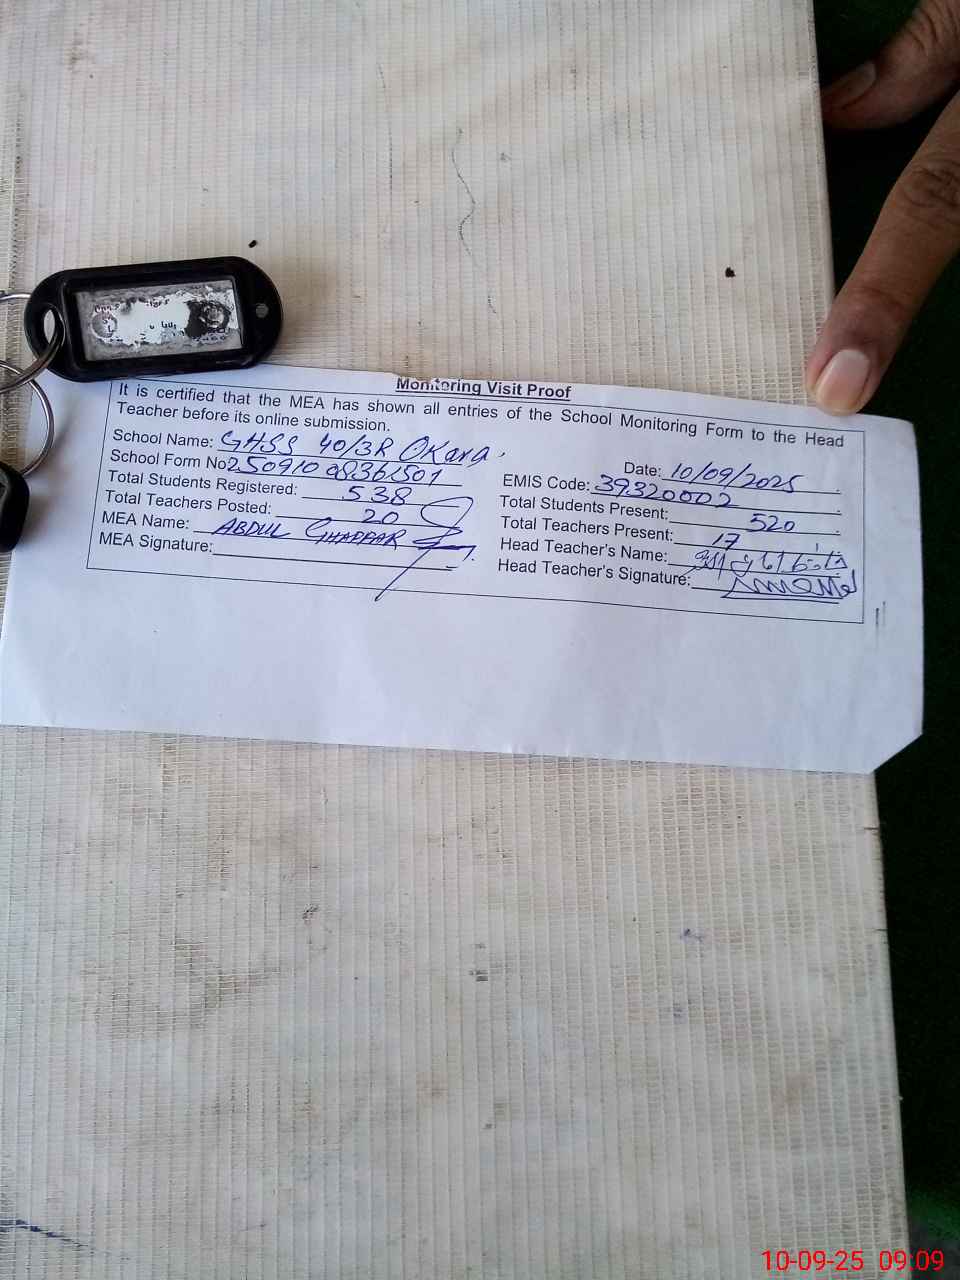 Monitoring Visit Proof
It is certified that the MEA has shown all entries of the School Monitoring Form to the Head
Teacher before its online submission.
School Name: GHSS 40/3R OKara.
Date: 10/09/2025
School Form No
EMIS Code: 39320002
Total Students Registered: 538
Total Students Present: 520
Total Teachers Posted: 20
Total Teachers Present: 17
MEA Name: ABDUL GHAFFAR
Head Teacher's Name:
MEA Signature:
Head Teacher's Signature:
10-09-25 09:09